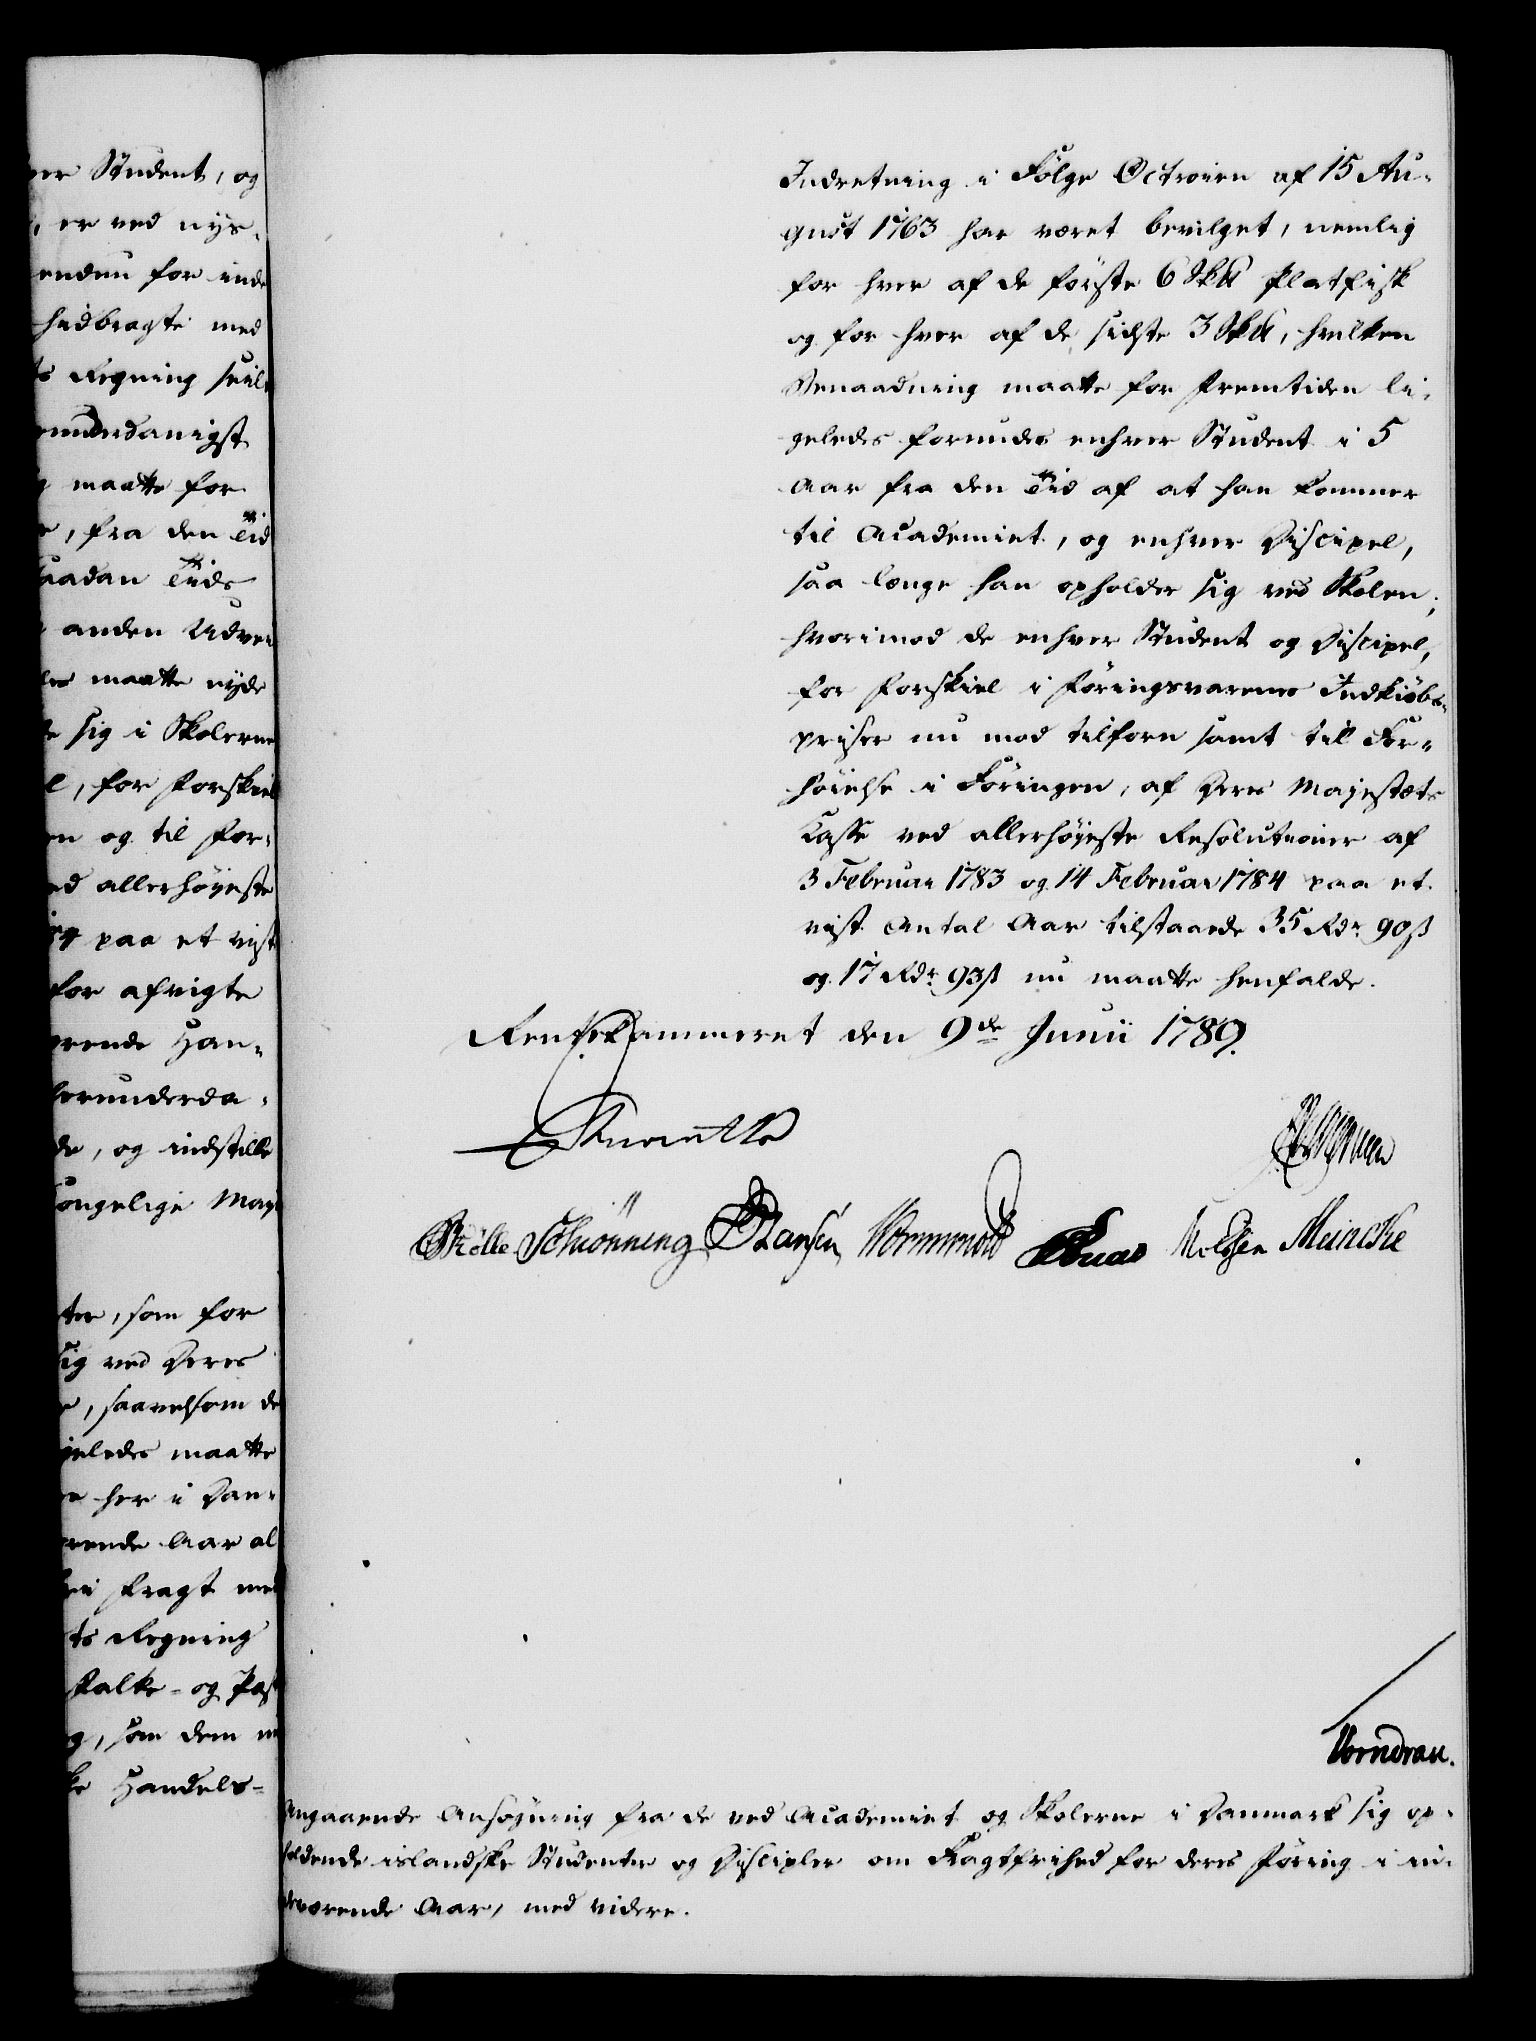 ver Student, og
, er ved nys-
enden for inde
hidbragte med
ts Regning seil-
erunderdanigst
g maatte for
e, fra den Tid
saadan Tids
anden Udvei
les maatte nyde
de sig i Skolerne
el, for Forskiel
en og til For-
ved allerhøyeste
84 paa et vist
for afvigte
ærende Han-
lerunderda-
de, og indstille
Kongelige May
ter, som for
sig ved Deres
e, saavelsom de
geledes maatte
e her i Dan-
ærende Aar al
fri Fragt med
ts Regning
Falke- og Post
g, som dem
ke Handels-
Indretning i Følge Octroien af 15 Au-
gust 1763 har været bevilget, nemlig
for hver af de første 6 Sk℔ Platfisk
og for hver af de sidste 3 Sk℔, hvilken
Benaadning maatte for Fremtiden li-
geledes forundes enhver Student i 5
Aar fra den Tid af at han kommer
til Academiet, og enhver Discipel,
saa længe han opholder sig ved Skolen;
hvorimod de enhver Student og Discipel,
for Forskiel i Føringsvarenes Indkiøbs-
priser nu mod tilforn samt til For-
høielse i Føringen, af Deres Majestæts
Casse ved allerhøyeste Resolutioner af
3 Februar 1783 og 14 Februar 1784 paa et
vist Antal Aar tilstaaede 35 Rdr 90 ß
og 17 Rdr 93 ß nu maatte henfalde.
Rentekammeret den 9de Junii 1789.
Schiønning Hansen Wormwold Meincke
Vorndran.
Angaaende Ansøgning fra de ved Academiet og Skolerne i Danmark sig op-
holdende islandske Studenter og Discipler om Fragtfrihed for deres Føring i nu-
værende Aar, med videre.